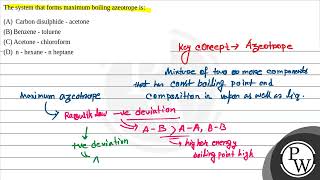 The system that forms maximum boiling azeotrope is:
(A) Carbon disulphide - acetone
(B) Benzene - toluene
(C) Acetone - chloroform
(D) n - hexane - n heptane
Key concept → Azeotrope
Mixture of two or more components
that has const boiling point and
composition in vapor as well as liq.
maximum azeotrope
Raoult's law -ve deviation
A-B > A-A, B-B
+ve deviation
higher energy
boiling point high
PW